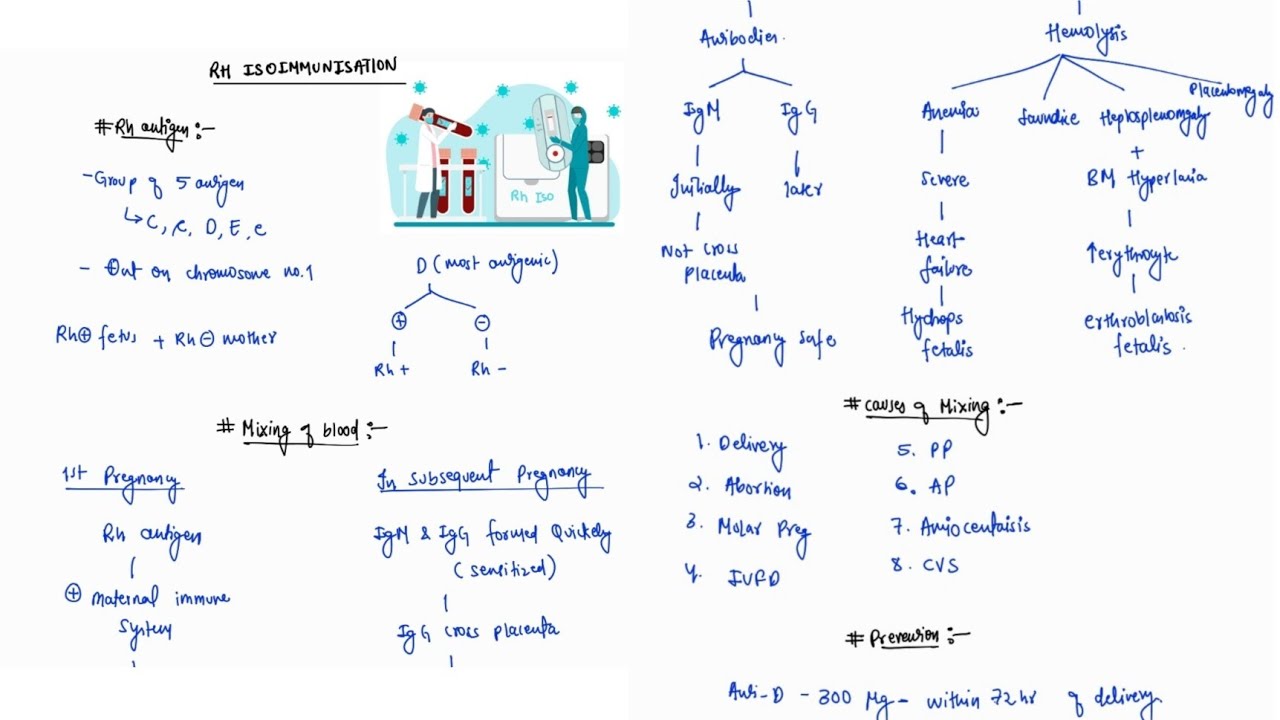 RH ISOIMMUNISATION
# Rh antigen :-
- Group of 5 antigen
↳ C, c, D, E, e
- Out on chromosome no. 1
Rh⊕ fetus + Rh⊖ mother
Rh Iso
D (most antigenic)
⊕ ⊖
Rh + Rh -
# Mixing of blood :-
1st Pregnancy
Rh antigen
⊕ maternal immune
System
In subsequent Pregnancy
IgM & IgG formed Quickely
(sensitized)
IgG cross placenta
Antibodies.
IgM IgG
Initially later
Not cross
placenta
Pregnancy safe
Hemolysis
Anemia Jaundice Heptosplenomgaly Placentomegaly
Severe
Heart
failure
Hydrops
fetalis
+
BM Hyperlasia
↑erythrocyte
erthroblastosis
fetalis.
# Causes of Mixing :-
1. Delivery
2. Abortion
3. Molar Preg
4. IUFD
5. PP
6. AP
7. Amiocentaisis
8. CVS
# Prevention :-
Anti-D - 300 Mg - within 72 hr of delivery.